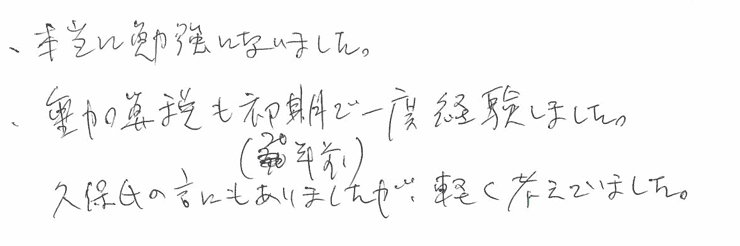 、本当に勉強になりました。
、重加算税も初期で一度経験しました。
(20年前)
久保氏の言にもありましたが、軽く考えていました。